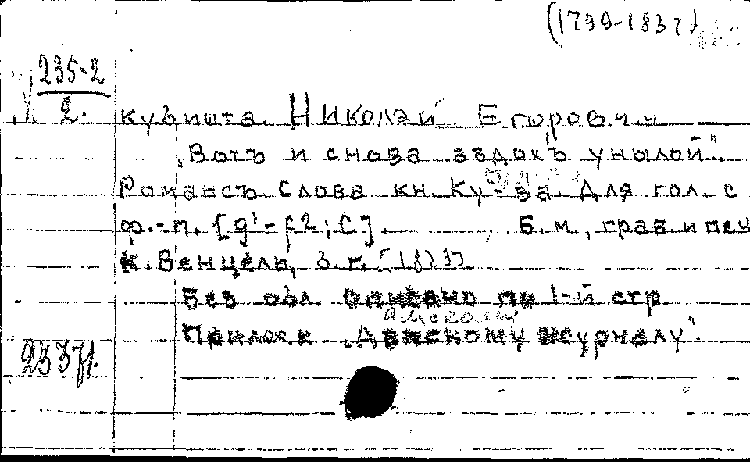 (1799-1837)
235-2
2.
Кубишта Николай Егорович
„Вотъ и снова вздохъ унылой".
Романсъ Слова кн. Ку-ва. Для гол. с
ф.-п. [g¹-f2; C]. Б.м., грав. и печ
К. Венцель, б. г. [183?]
Без обл. Описано по 1-й стр
Прилож. к „Дамскому журналу".